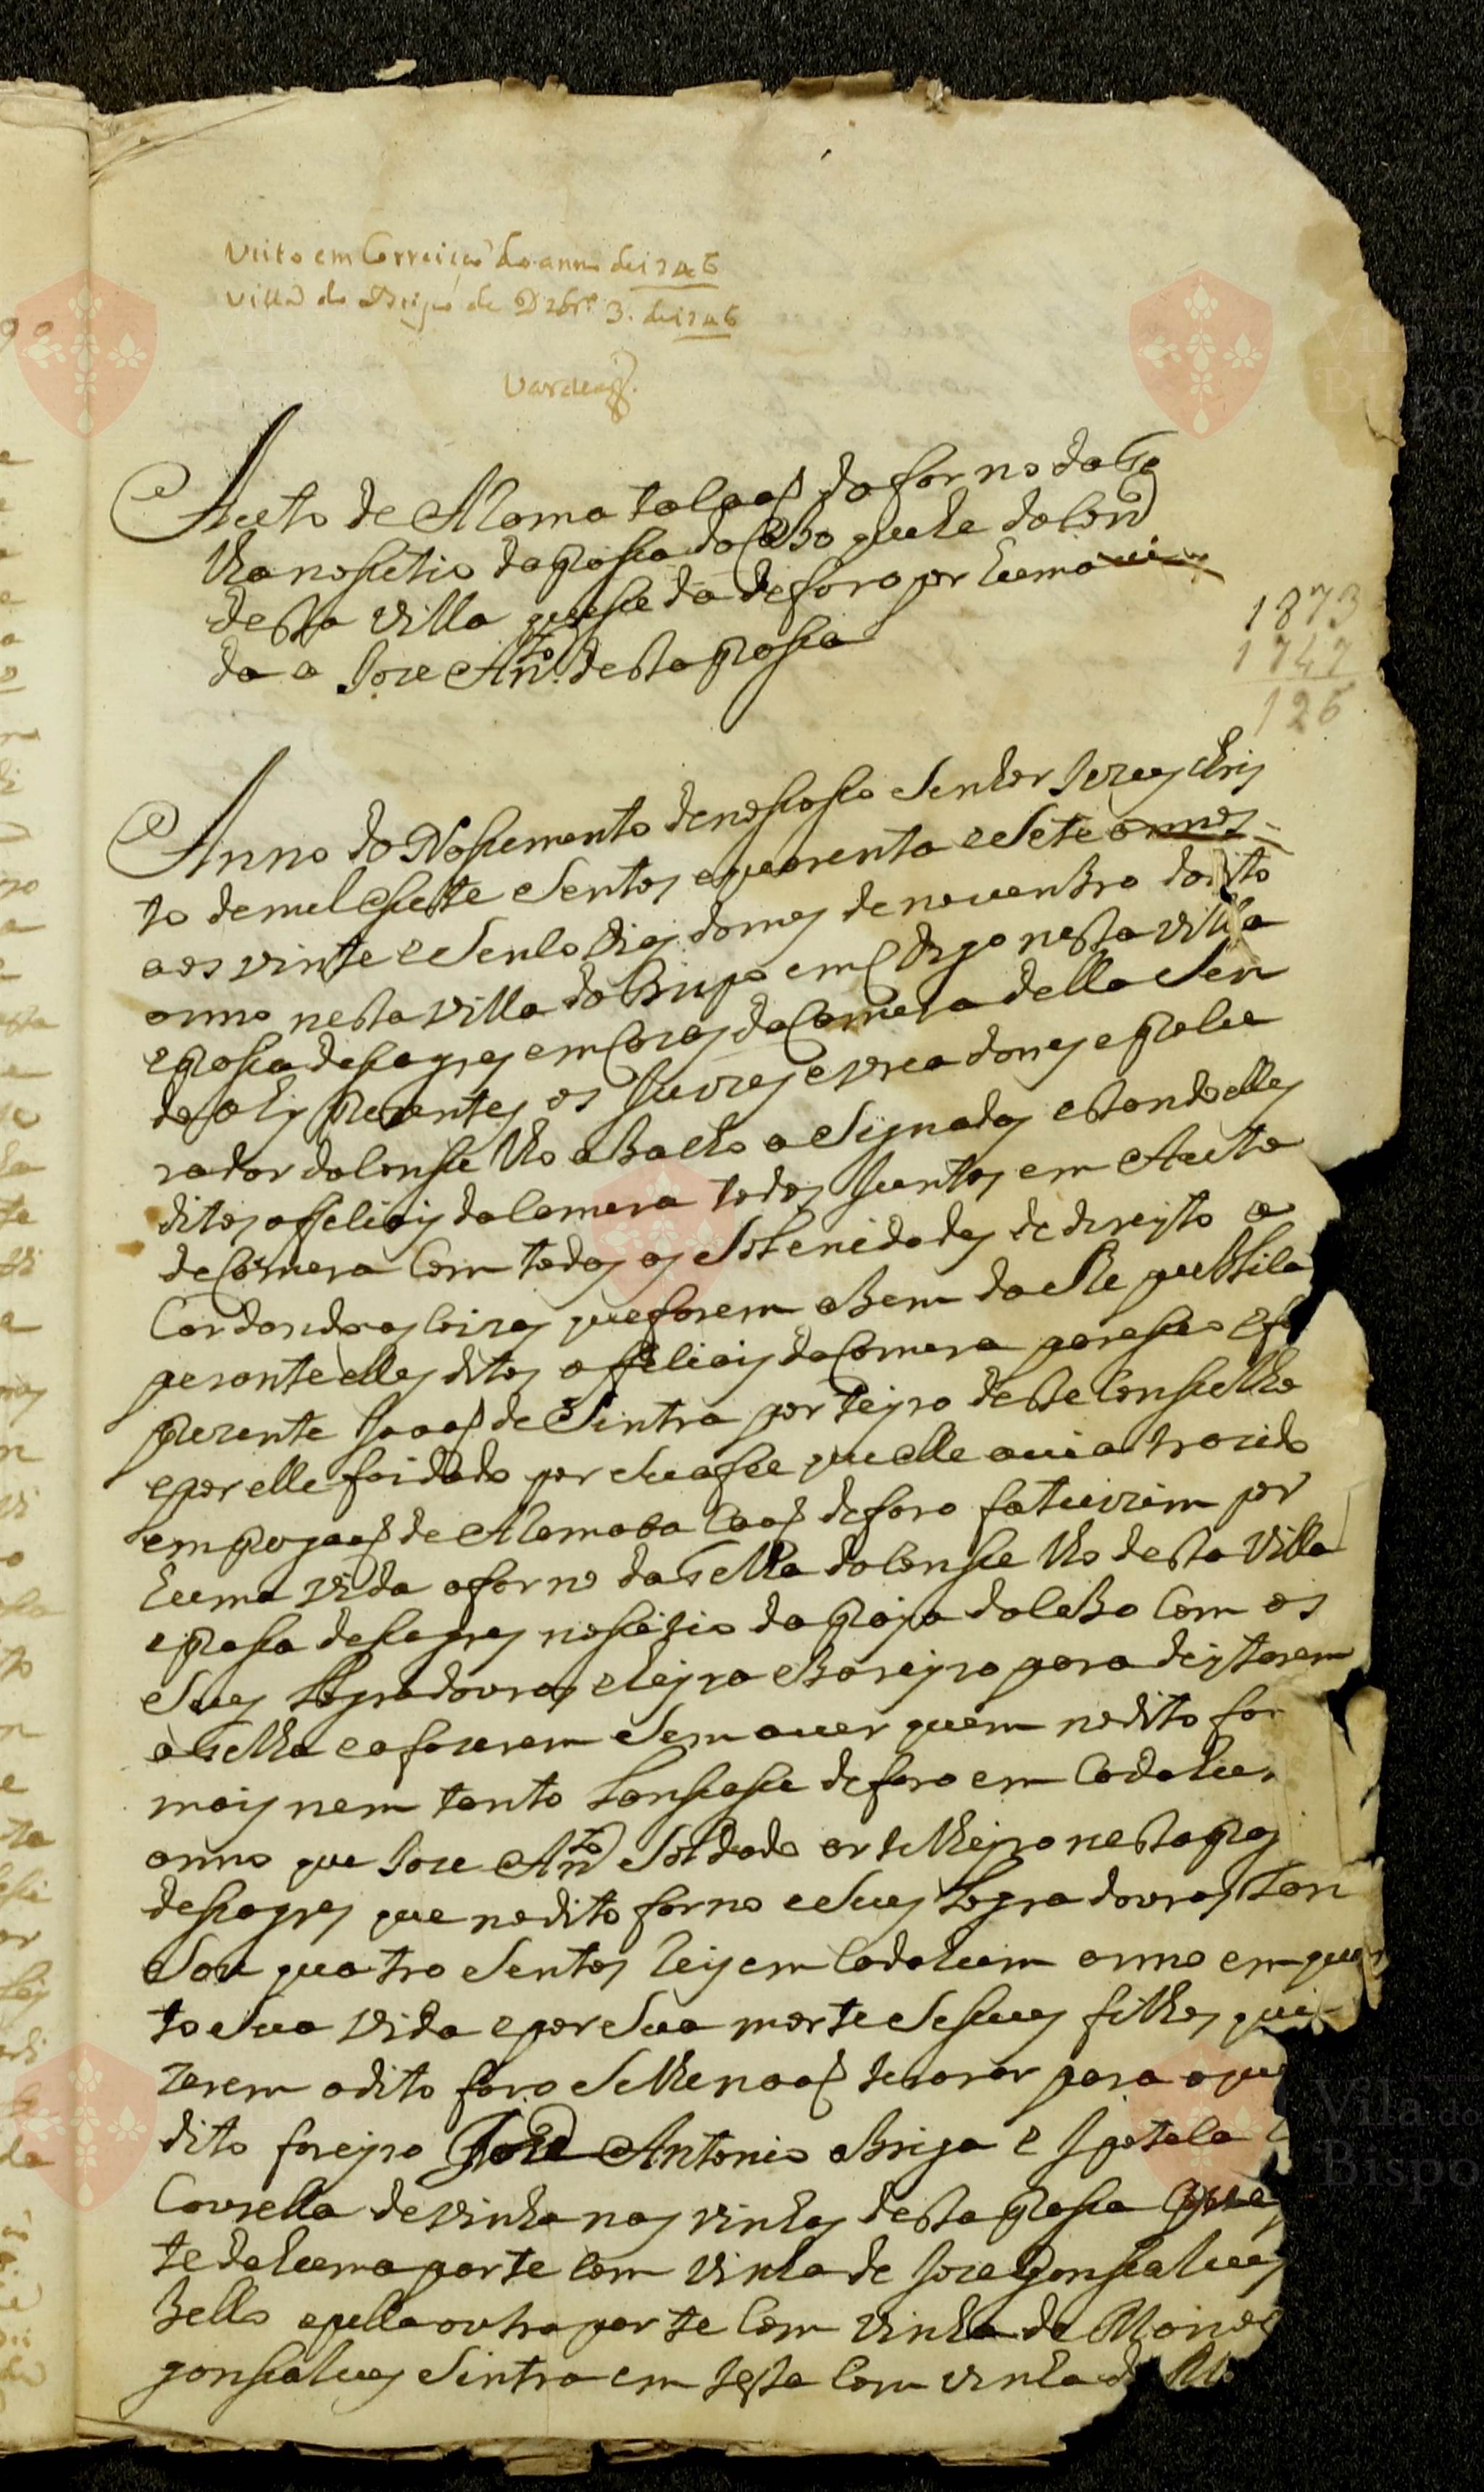 Visto em Correição do anno de 1746
Villa do Bispo de Dzbrº 3. de 1746
Auto de ARematasaõ do forno da Te
lha no sitio da prasa do Cabo que he do Con
desta villa que se dá de foro por huma vi
da a Joze Antº desta prasa
1873
1747
126
Anno do Nasemento de nosso Senhor Jezus Chris
to de mil e sete Sentos e quorenta e Sete annos
aos vinte e Sinco dias do mes de novenbro do dito
anno nesta villa do Bispo em digo nesta villa
e prasa de sagres em Cazas da Camera della Sen
do ahi prezentes os Juizes e vreadores e procu
rador do Conselho abaicho aSignados estando elles
ditos offeciais da Camera todos Juntos em Auto
de Camera Com todas as Solenidades de direyto a
Cordando as Coizas que forem a Bem da Re publica
perante elles ditos offeciais da Camera pareseo e foi
prezente Joaõ de Sintra porteyro deste Conselho
e por elle foi dado por sua fee que elle avia trazido
em pregaõ de aRemata Caõ de foro fatiuzim por
huma vida o forno da Telha do Conselho desta Villa
e prasa de sagres no sitio da prasa do Cabo Com os
Seus Logradouros e leyra e Bareyro para deytarem
a telha e a fazerem Sem aver quem no dito for
mais nem tanto Lansase de foro em Cada hum
anno que Joze Antº Soldado artelheyro nesta pras
de sagres que no dito forno e Seus Logradouros Lan
Sou quatro Sentos reis em Cada hum anno em quan
to Sua vida e por Sua morte Se seus filhos qui
zerem o dito foro Se lhe naõ terarar para o que
dito foreyro Joze Antonio obriga e Ipoteca
Courella de vinha nas vinhas desta prasa
te de huma parte Com vinha de Joze Gonsalues
Bello e pella outra parte Com vinha de Manoel
gonsalues Sintra em testa Com vinha de